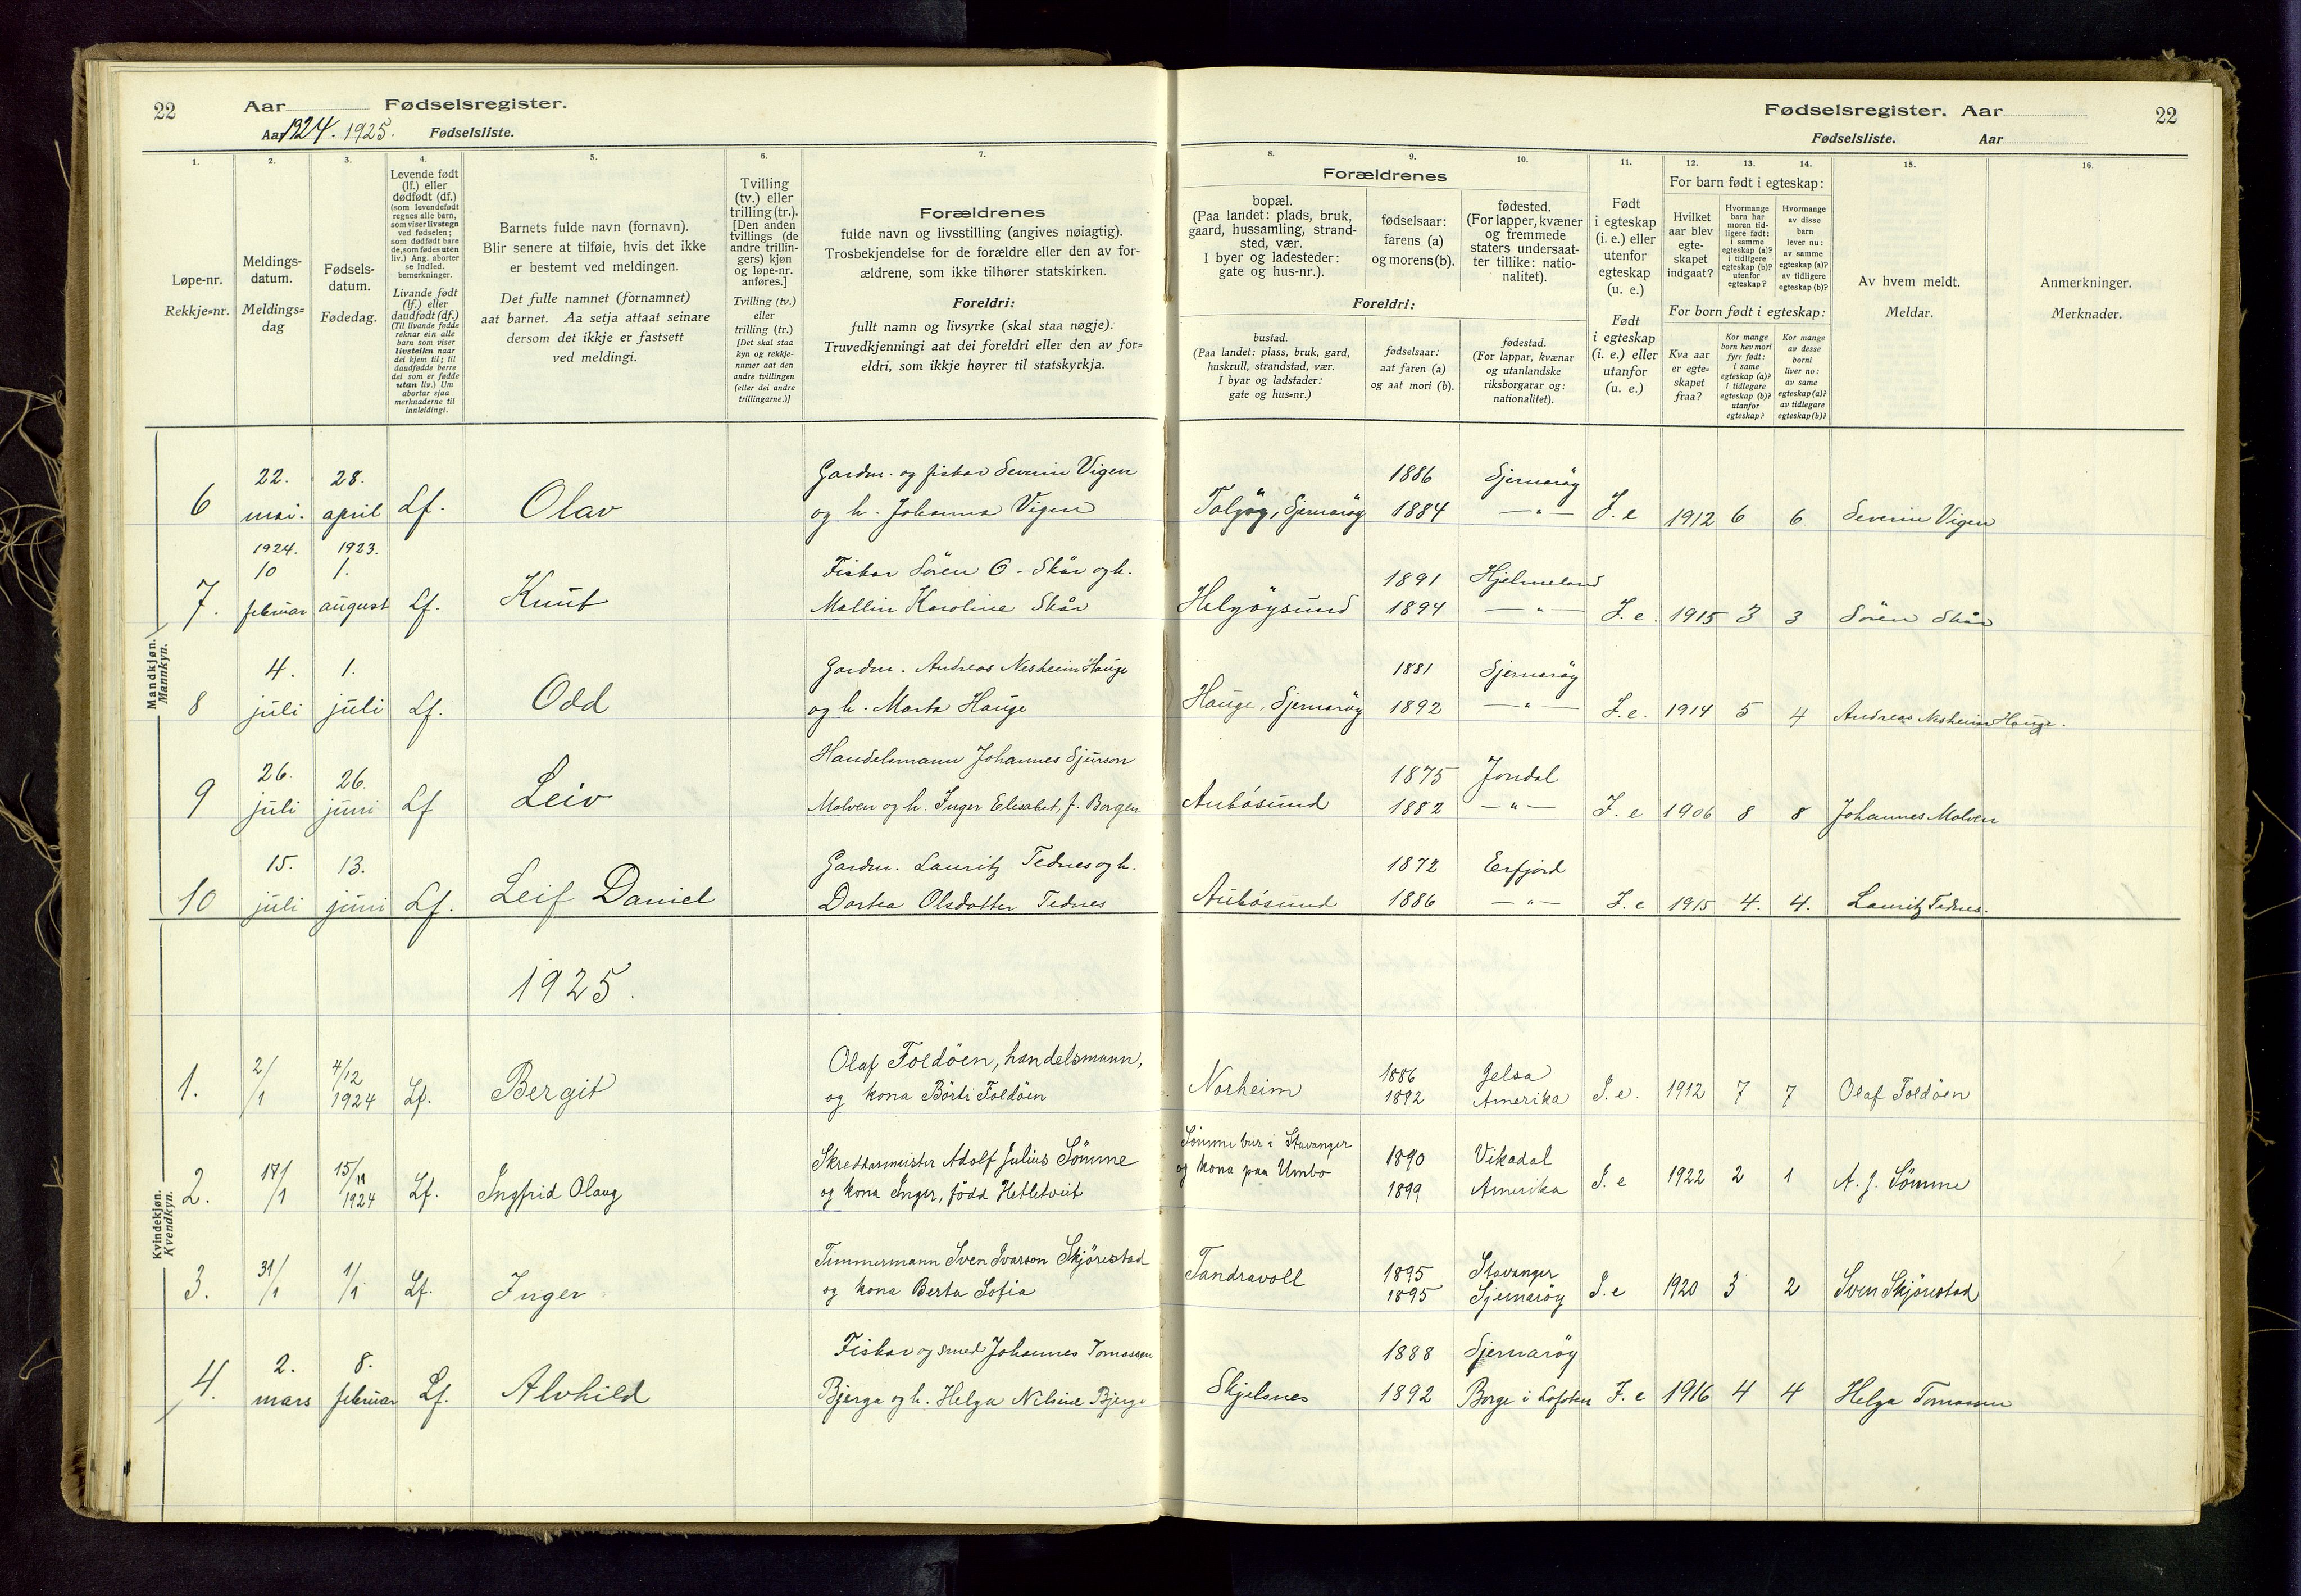 22 Aar Fødselsregister.
Aar 1924. 1925. Fødselsliste.
Fødselsregister. Aar 22
Fødselsliste. Aar
1. 2. 3. 4. 5. 6. 7. 8. 9. 10. 11. 12. 13. 14. 15. 16.
Løpe-nr.
Rekkje=nr.
Meldings-
datum.
Meldings=
dag
Fødsels-
datum.
Fødedag.
Levende født
(lf.) eller
dødfødt (df.)
(som levendefødt
regnes alle barn,
som viser livstegn
ved fødselen;
som dødfødt bare
de, som fødes uten
liv.) Ang. aborter
se indled.
bemerkninger.
Livande født
(lf.) eller
daudfødt (df.)
(Til livande fødde
reknar ein alle
barn som viser
livsteikn naar
dei kjem til; til
daudfødde berre
dei som er fødde
utan liv.) Um
abortar sjaa
merknaderne til
innleidingi.
Barnets fulde navn (fornavn).
Blir senere at tilføie, hvis det ikke
er bestemt ved meldingen.
Det fulle namnet (fornamnet)
aat barnet. Aa setja attaat seinare
dersom det ikkje er fastsett
ved meldingi.
Tvilling
(tv.) eller
trilling (tr.).
[Den anden
tvillings (de
andre trillin-
gers) kjøn
og løpe-nr.
anføres.]
Tvilling (tv.)
eller
trilling (tr.)
[Det skal staa
kyn og rekkje-
numer aat den
andre tvillingen
(eller dei andre
trillingarne.)]
Forældrenes
fulde navn og livsstilling (angives nøiagtig).
Trosbekjendelse for de forældre eller den av for-
ældrene, som ikke tilhører statskirken.
Foreldri:
fullt namn og livsyrke (skal staa nøgje).
Truvedkjenningi aat dei foreldri eller den av for=
eldri, som ikkje høyrer til statskyrkja.
Forældrenes
bopæl.
(Paa landet: plads, bruk,
gaard, hussamling, strand-
sted, vær.
I byer og ladesteder:
gate og hus-nr.).
fødselsaar:
farens (a)
og morens (b).
fødested.
(For lapper, kvæner
og fremmede
staters undersaat-
ter tillike: natio-
nalitet).
Foreldri:
bustad.
(Paa landet: plass, bruk, gard,
huskrull, strandstad, vær.
I byar og ladstader:
gate og hus=nr.)
fødselsaar:
aat faren (a)
og aat mori (b).
fødestad.
(For lappar, kvænar
og utanlandske
riksborgarar og:
nationalitet).
Født
i egteskap
(i. e.) eller
utenfor
egteskap
(u. e.)
Født
i egteskap
(i. e.) eller
utanfor
(u. e.)
For barn født i egteskap:
Hvilket
aar blev
egte-
skapet
indgaat?
Hvormange
barn har
moren tid-
ligere født:
i samme
egteskap (a)?
i tidligere
egteskap (b)?
utenfor
egteskap?
Hvormange
av disse
barn
lever nu:
av samme
egteskap (a)?
av tidligere
egteskap (b)?
For born født i egteskap:
Kva aar
er egte=
skapet
fraa?
Kor mange
born hev mori
fyrr født:
i same
egteskap (a)?
i tidlegare
egteskap (b)?
utanfor
egteskap?
Kor mange
av desse
borni
liver no:
av same
egteskap (a)?
av tidlegare
egteskap (b)?
Av hvem meldt.
Meldar.
Anmerkninger.
Merknader.
Mandkjøn.
Mannkyn.
22. 28. Gardm. og fiskar Severin Vigen 1886 Sjernarøy
6 mai. april Lf. Olav og h. Johanna Vigen Talgøy, Sjernarøy 1884 —"— I. e 1912 6 6 Severin Vigen
1924. 1923.
10 1. Fiskar Sören O. Skår og h. 1891 Hjelmeland
7. februar august Lf. Knut Mallin Karoline Skår Helgøysund 1894 —"— I. e. 1915 3 3 Sören Skår
4. 1. Gardm. Andreas Nesheim Hauge 1881 Sjernarøy
8 juli juli Lf. Odd og h. Marta Hauge Hauge, Sjernarøy 1892 —"— I. e. 1914 5 4 Andreas Nesheim Hauge.
26. 26. Handelsmann Johannes Sjurson 1875 Jondal
9 juli juni Lf Leiv Malven og h. Inger Elisabet, f. Borgen Aubøsund 1882 —"— I. e 1906 8 8 Johannes Malven
15. 13. Gardm. Lauritz Tednes og h. 1872 Erfjord
10 juli juni Lf. Leif Daniel Dortea Olsdotter Tednes Aubøsund 1886 —"— I. e 1915 4. 4. Lauritz Tednes.
1925.
Kvindekjøn.
Kvendkyn.
2/ 4/12 Olaf Foldöen, handelsmann, 1886 Jelsa
1. /1 1924 Lf. Bergit og kona Börti Foldöen Norheim 1892 Amerika I. e. 1912 7 7 Olaf Foldöen
17/ 15/11 Skreddarmeister Adolf Julius Sömme Sömme bur i Stavanger 1890 Vikadal
2. /1 1924 Lf. Ingfrid Olaug og kona Inger, född Hetletveit og kona paa Umbo 1899 Amerika I. e 1922 2 1 A. J. Sömme
31/ 1/ Timmermann Sven Ivarson Skjörestad 1895 Stavanger
3. /1 /1 Lf. Inger og kona Berta Sofia Tandravoll 1895 Sjernarøy I. e 1920 3 2 Sven Skjörestad
2. 8. Fiskar og smed Johannes Tomassen 1888 Sjernarøy
4. mars februar Lf. Alvhild Bjerga og h. Helga Nilsine Bjerga Skjelsnes 1892 Borge i Lofoten I. e 1916 4 4 Helga Tomassen